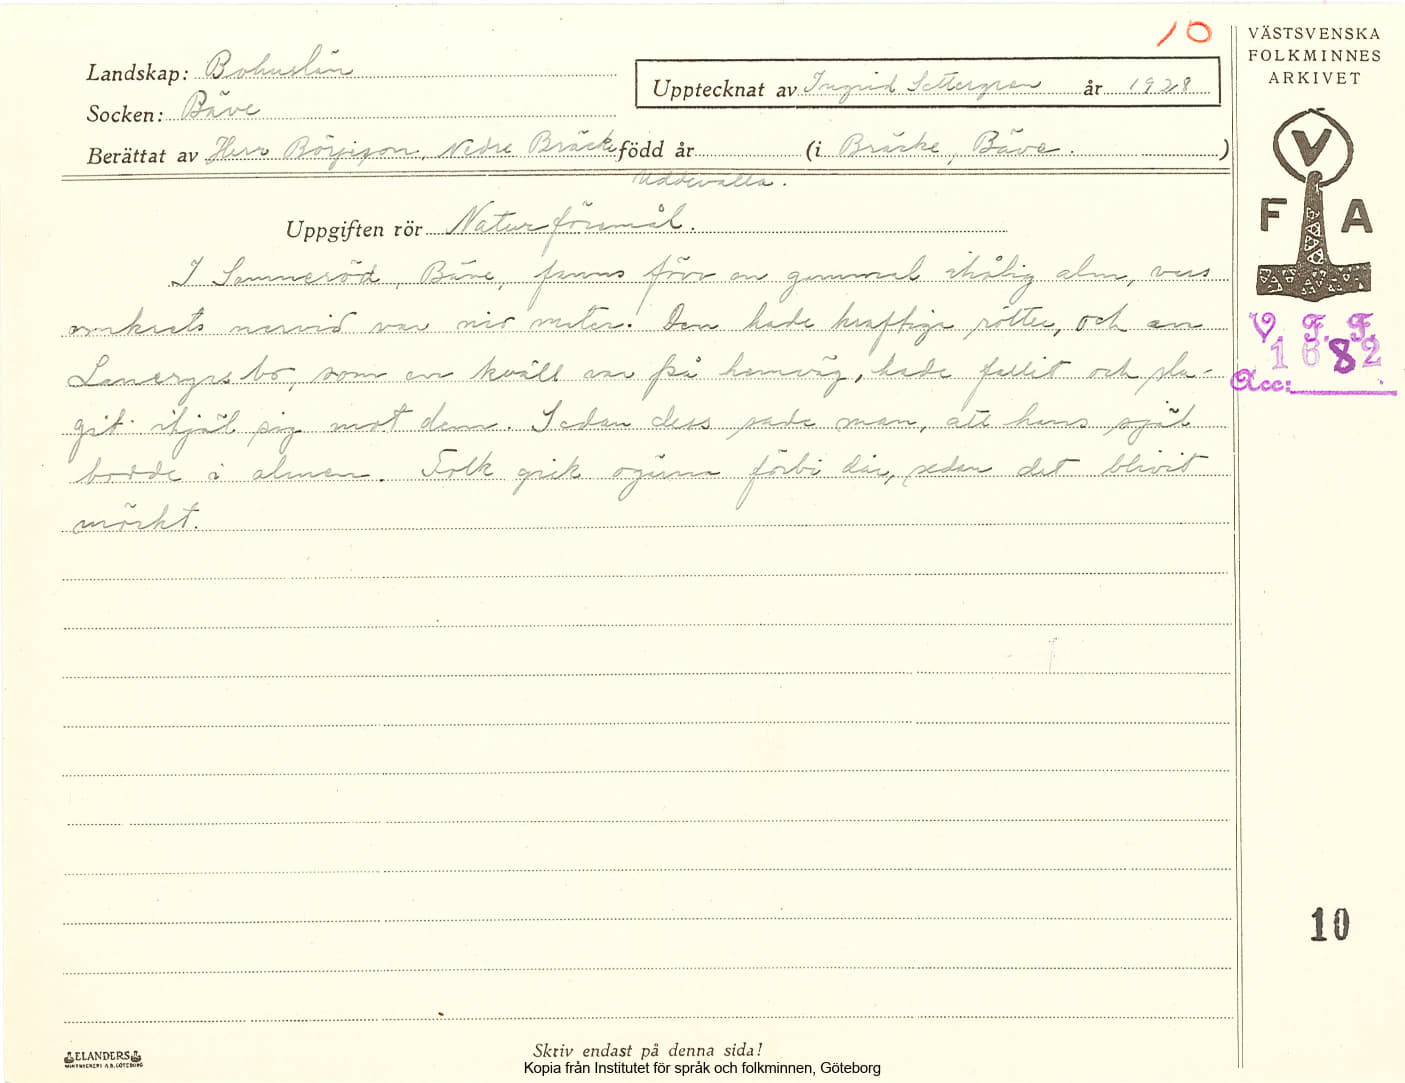 10
VÄSTSVENSKA
FOLKMINNES
ARKIVET
Landskap: Bohuslän
Upptecknat av Ingrid Settergren år 1928
Socken: Bäve
Berättat av Herr Börjeson, Nedre Bräcke född år (i Bräcke, Bäve. )
Uddevalla.
V
F A
Uppgiften rör Naturföremål.
I Sammeröd, Bäve, fanns förr en gammal ihålig alm, vars
omkrets nervid var nio meter. Den hade kraftiga rötter, och en
Lanerysbo, som en kväll var på hemväg, hade fallit och sla-
git ihjäl sig mot dem. Sedan dess sade man, att hans själ
bodde i almen. Folk gick ogärna förbi där, sedan det blivit
mörkt.
V. F. F.
1682
Acc:
10
ELANDERS
Skriv endast på denna sida!
Kopia från Institutet för språk och folkminnen, Göteborg